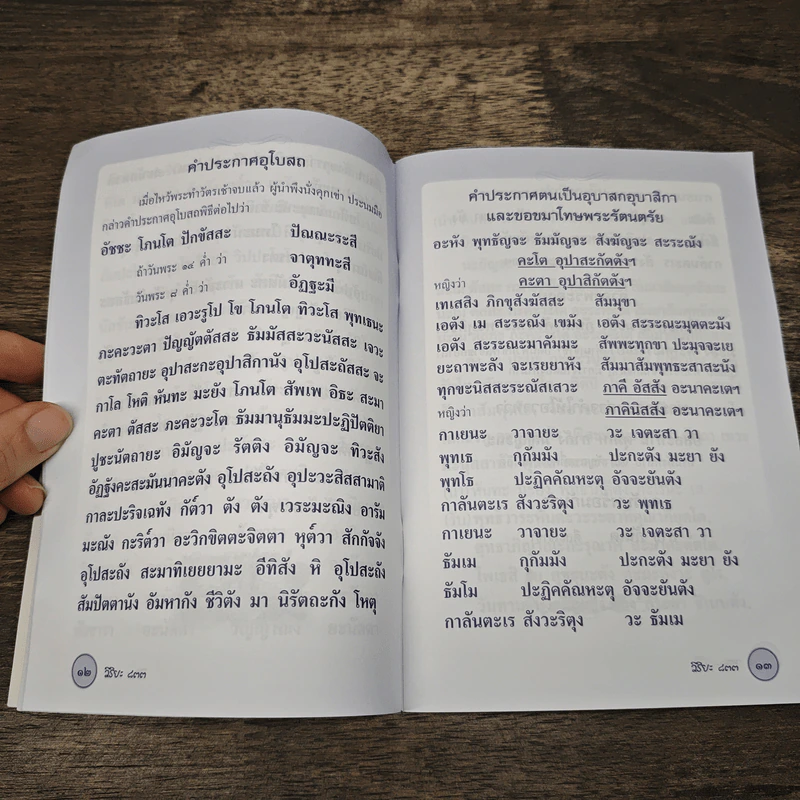 คำประกาศอุโบสถ
เมื่อไหว้พระทำวัตรเช้าจบแล้ว ผู้นำพึงนั่งคุกเข่า ประนมมือ
กล่าวคำประกาศอุโบสถพิธีต่อไปว่า
อัชชะ โภนโต ปักขัสสะ ปัณณะระสี
ถ้าวันพระ ๑๔ ค่ำ ว่า จาตุททะสี
วันพระ ๘ ค่ำ ว่า อัฏฐะมี
ทิวะโส เอวะรูโป โข โภนโต ทิวะโส พุทเธนะ
ภะคะวะตา ปัญญัตตัสสะ ธัมมัสสะวะนัสสะ เจวะ
ตะทัตถายะ อุปาสะกะอุปาสิกานัง อุโปสะถัสสะ จะ
กาโล โหติ หันทะ มะยัง โภนโต สัพเพ อิธะ สะมา
คะตา ตัสสะ ภะคะวะโต ธัมมานุธัมมะปะฏิปัตติยา
ปูชะนัตถายะ อิมัญจะ รัตติง อิมัญจะ ทิวะสัง
อัฏฐังคะสะมันนาคะตัง อุโปสะถัง อุปะวะสิสสามาติ
กาละปะริจเฉทัง กัต๎วา ตัง ตัง เวระมะณิง อารัม
มะณัง กะริต๎วา อะวิกขิตตะจิตตา หุต๎วา สักกัจจัง
อุโปสะถัง สะมาทิเยยยามะ อีทิสัง หิ อุโปสะถัง
สัมปัตตานัง อัมหากัง ชีวิตัง มา นิรัตถะกัง โหตุ
๑๒ วิริยะ ๘๓๓
คำประกาศตนเป็นอุบาสกอุบาสิกา
และขอขมาโทษพระรัตนตรัย
อะหัง พุทธัญจะ ธัมมัญจะ สังฆัญจะ สะระณัง
คะโต อุปาสะกัตตังฯ
หญิงว่า คะตา อุปาสิกัตตังฯ
เทเสสิง ภิกขุสังฆัสสะ สัมมุขา
เอตัง เม สะระณัง เขมัง เอตัง สะระณะมุตตะมัง
เอตัง สะระณะมาคัมมะ สัพพะทุกขา ปะมุจจะเย
ยะถาพะลัง จะเรยยาหัง สัมมาสัมพุทธะสาสะนัง
ทุกขะนิสสะระณัสเสวะ ภาคี อัสสัง อะนาคะเตฯ
หญิงว่า ภาคินิสสัง อะนาคะเตฯ
กาเยนะ วาจายะ วะ เจตะสา วา
พุทเธ กุกัมมัง ปะกะตัง มะยา ยัง
พุทโธ ปะฏิคคัณหะตุ อัจจะยันตัง
กาลันตะเร สังวะริตุง วะ พุทเธ
กาเยนะ วาจายะ วะ เจตะสา วา
ธัมเม กุกัมมัง ปะกะตัง มะยา ยัง
ธัมโม ปะฏิคคัณหะตุ อัจจะยันตัง
กาลันตะเร สังวะริตุง วะ ธัมเม
วิริยะ ๘๓๓ ๑๓